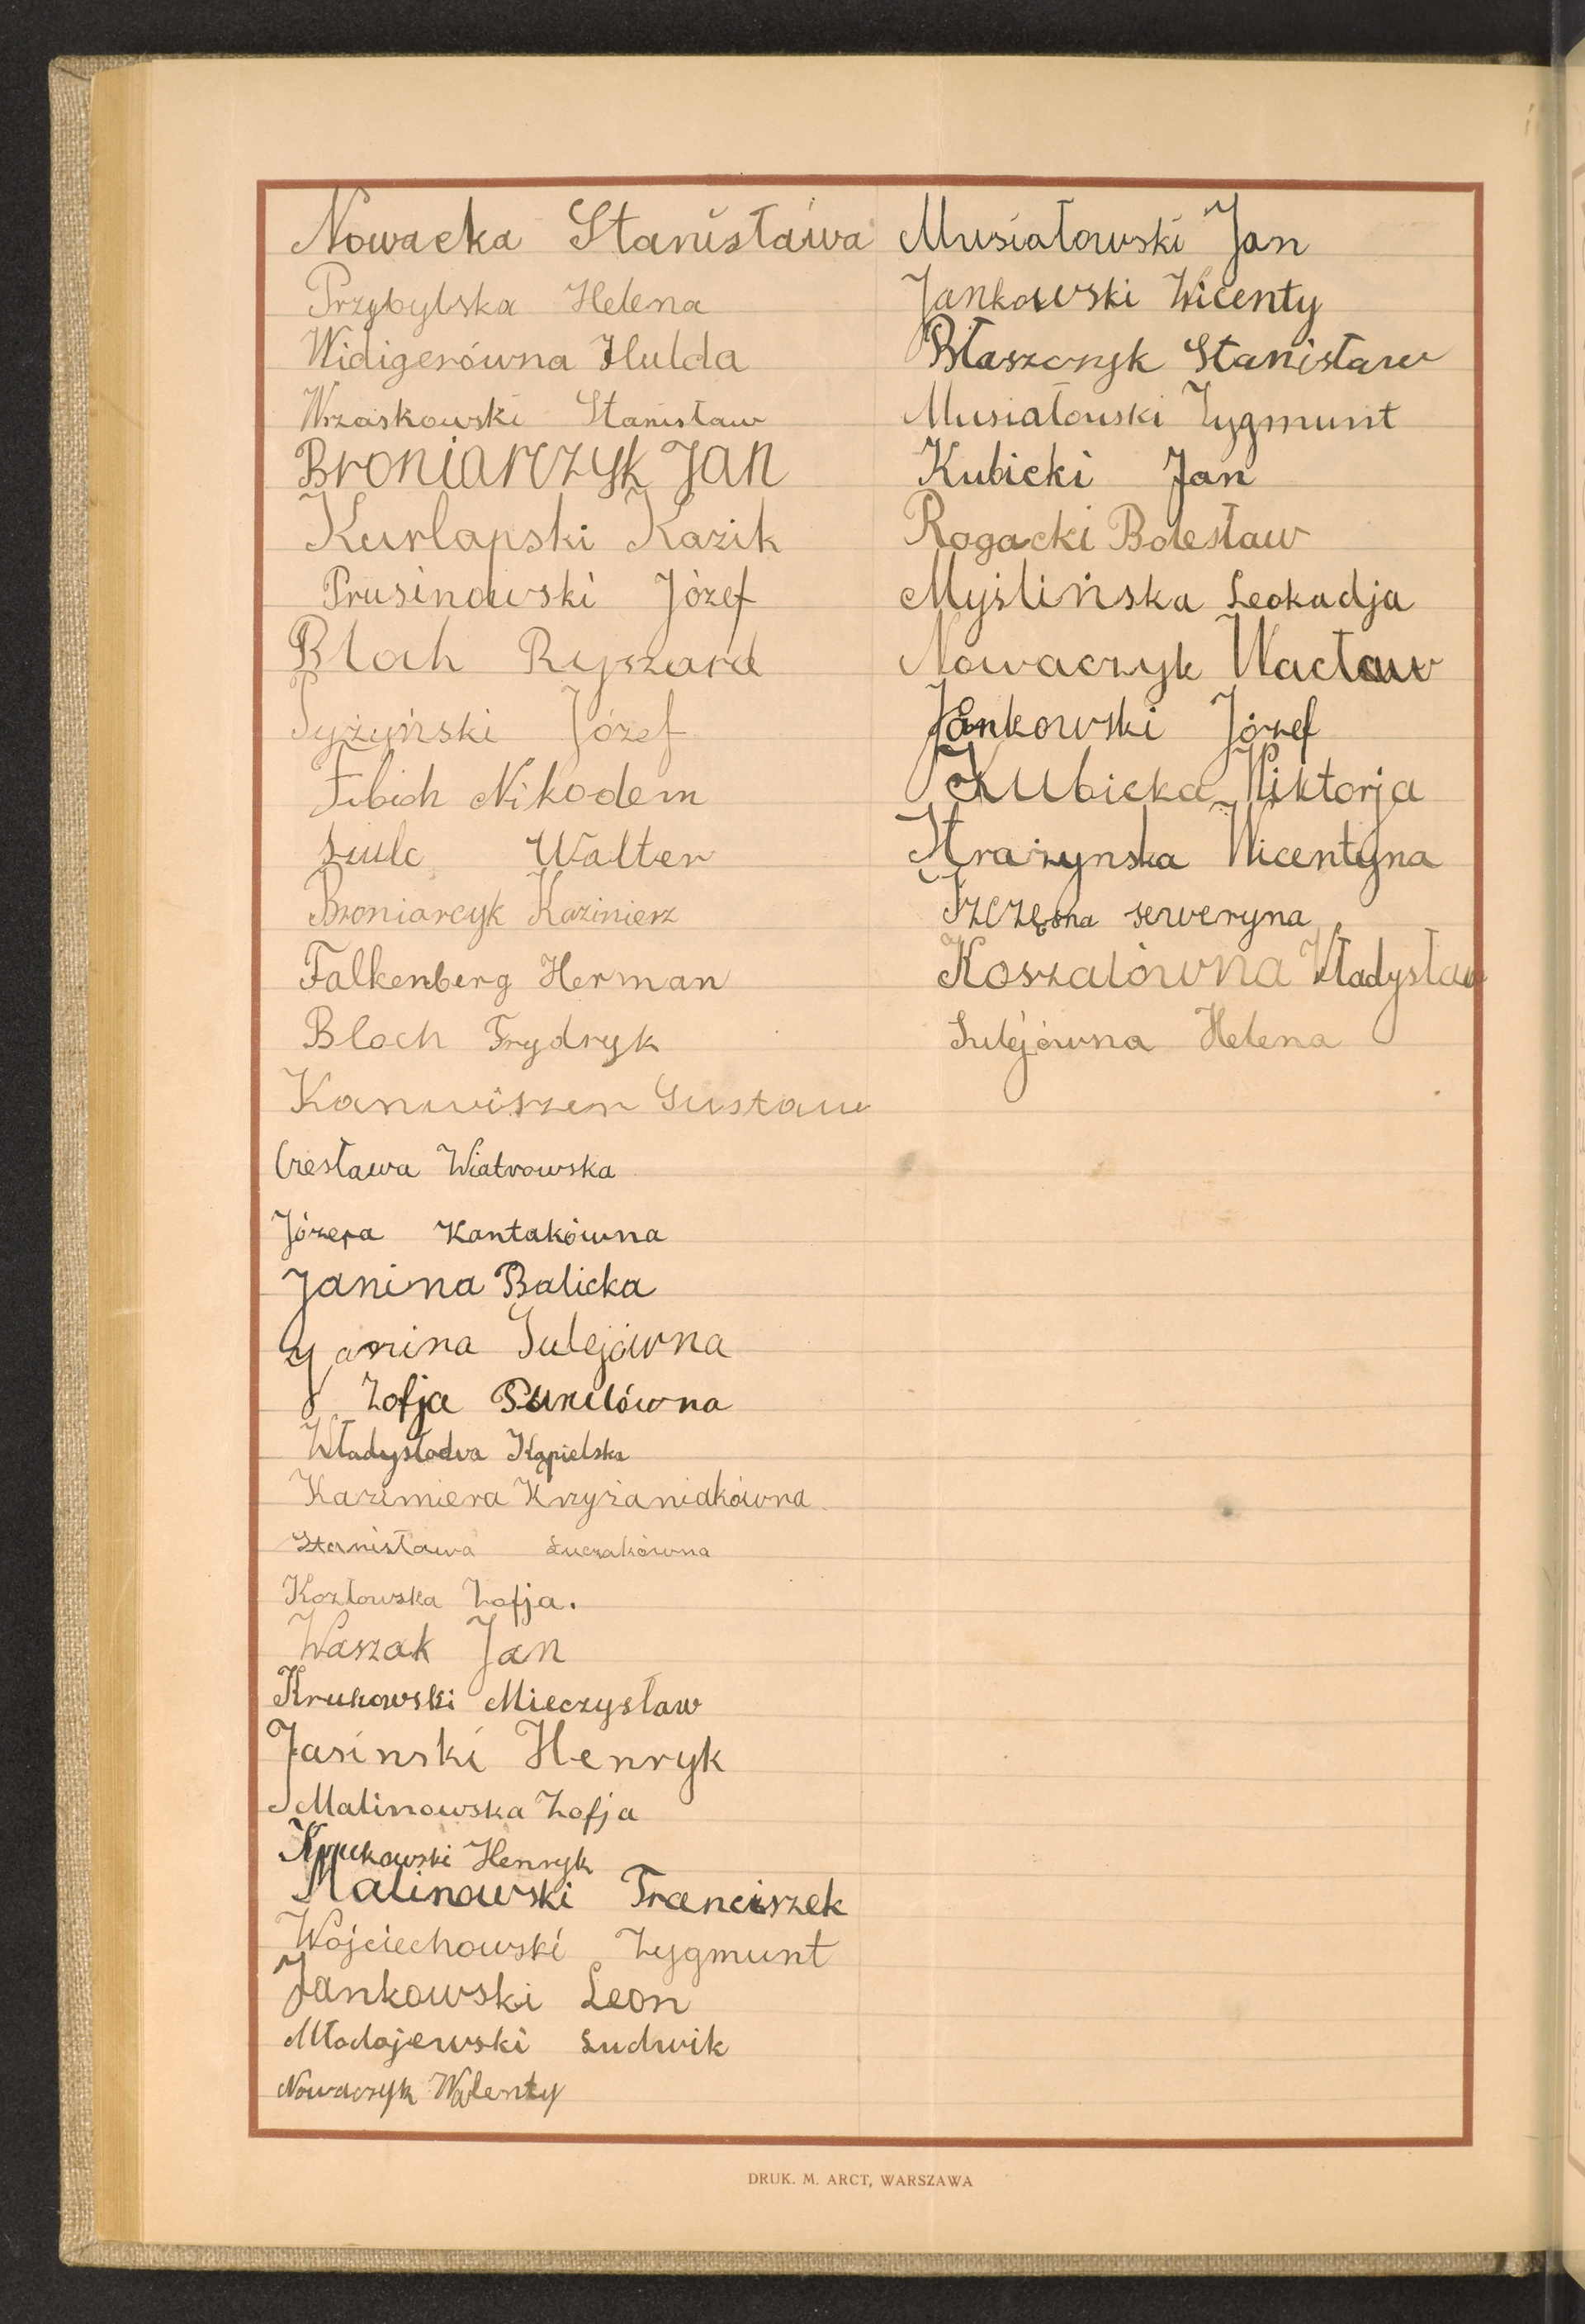 Nowacka Stanisława
Przybylska Helena
Widigerówna Hulda
Wrzaskowski Stanisław
Broniarczyk Jan
Kurlapski Kazik
Prusinowski Józef
Bloch Ryszard
Pyżyński Józef
Fibich Nikodem
Szulc Walter
Broniarcyk Kazimierz
Falkenberg Herman
Bloch Frydryk
Kanwiszer Gustaw
Czesława Wiatrowska
Józefa Kantakówna
Janina Balicka
Janina Sulejówna
Zofja
Władysława Kąpielska
Kazimiera Krzyżaniakówna
Stanisława Łuczakówna
Kozłowska Zofja.
Waszak Jan
Krukowski Mieczysław
Jasinski Henryk
Malinowska Zofja
Krukowski Henryk
Malinowski Franciszek
Wojciechowski Zygmunt
Jankowski Leon
Młodojewski Ludwik
Nowaczyk Walenty
Musiałowski Jan
Jankowski Wicenty
Błaszczyk Stanisław
Musiałouski Zygmunt
Kubicki Jan
Rogacki Bolesław
Myślińska Leokadja
Nowaczyk Wacław
Jankowski Józef
Kubicka Wiktorja
Strażynska Wicentyna
Szczęsna serweryna
Koszalówna Władysława
Sulejówna Helena
DRUK. M. ARCT, WARSZAWA